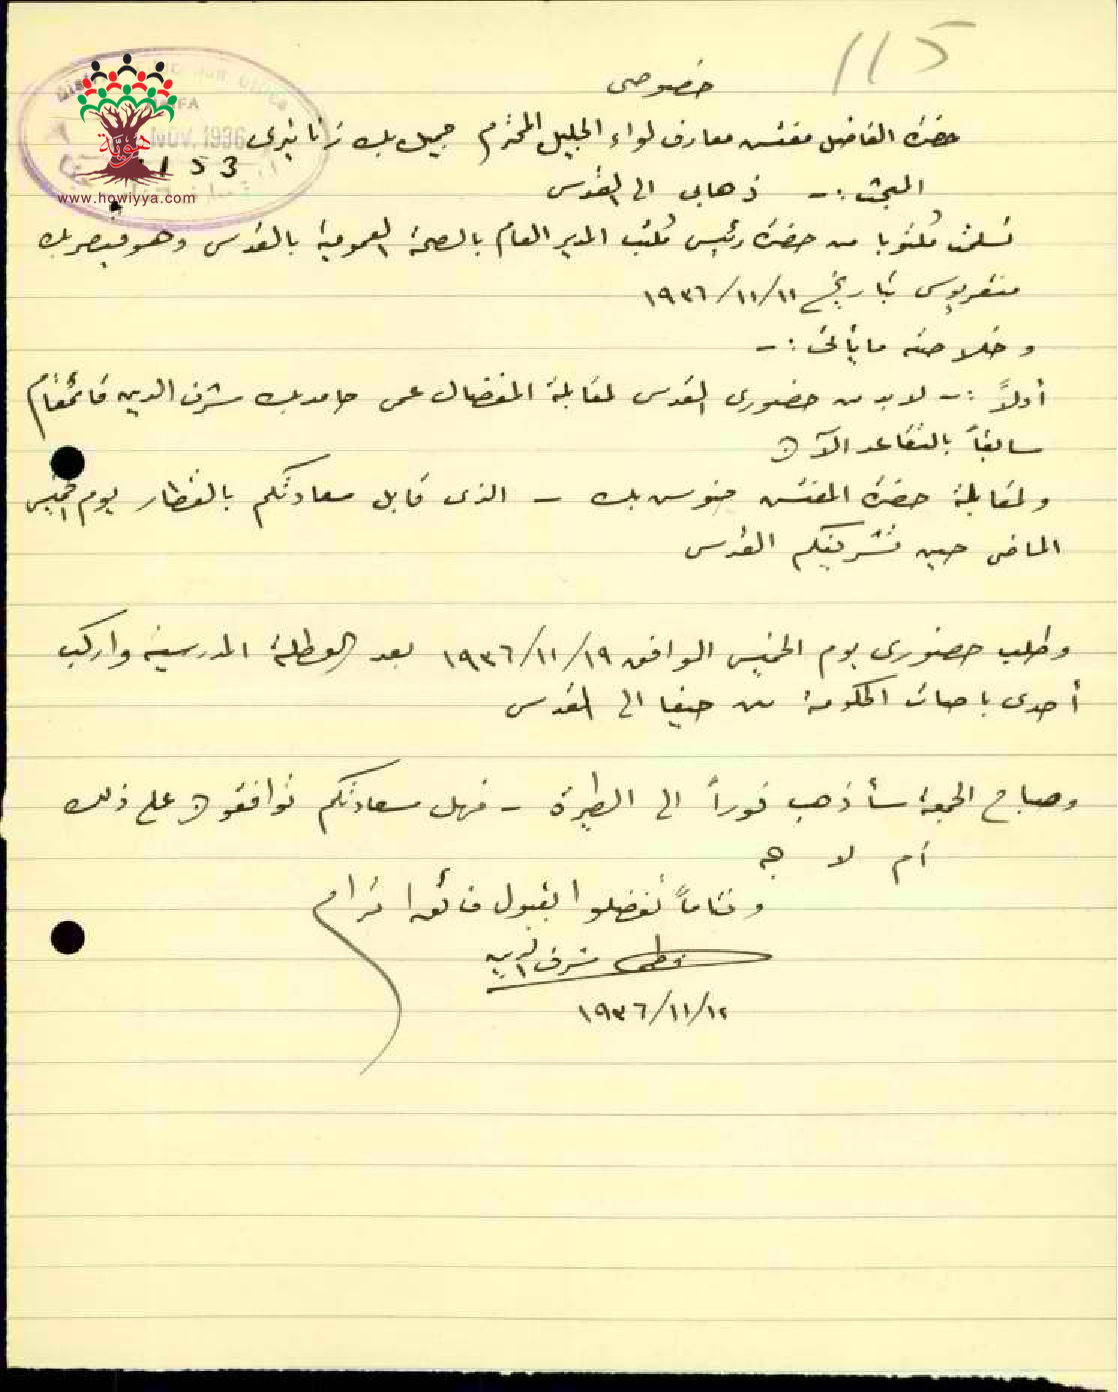 115
خصوصي
حضرة الفاضل مفتش معارف لواء الجليل المحترم جميل بك
NOV. 1936
153
هوية
www.howiyya.com
المبحث :- ذهابي الى القدس
تسلمت مكتوبا من حضرة رئيس مكتب المدير العام بالصحة العمومية بالقدس وهو قيصر بك
بتاريخ ١١/١١/١٩٣٦
وخلاصته ما يأتي :-
أولاً :- لا بد من حضوري القدس لمقابلة المفضال عمي حامد بك شرف الدين قائمقام
سابقاً بالتقاعد الآن
ولمقابلة حضرة المفتش بك - الذي قابل سعادتكم بالقطار يوم الخميس
الماضي حين تشريفكم القدس
وطلب حضوري يوم الخميس الموافق ١٩/١١/١٩٣٦ بعد العطلة المدرسية واركب
أحدى باصات الحكومة من حيفا الى القدس
وصباح الجمعة سأذهب فوراً الى الطيرة - فهل سعادتكم توافقون على ذلك
أم لا
وختاماً تفضلوا بقبول فائق احترام
شرف الدين
١٢/١١/١٩٣٦